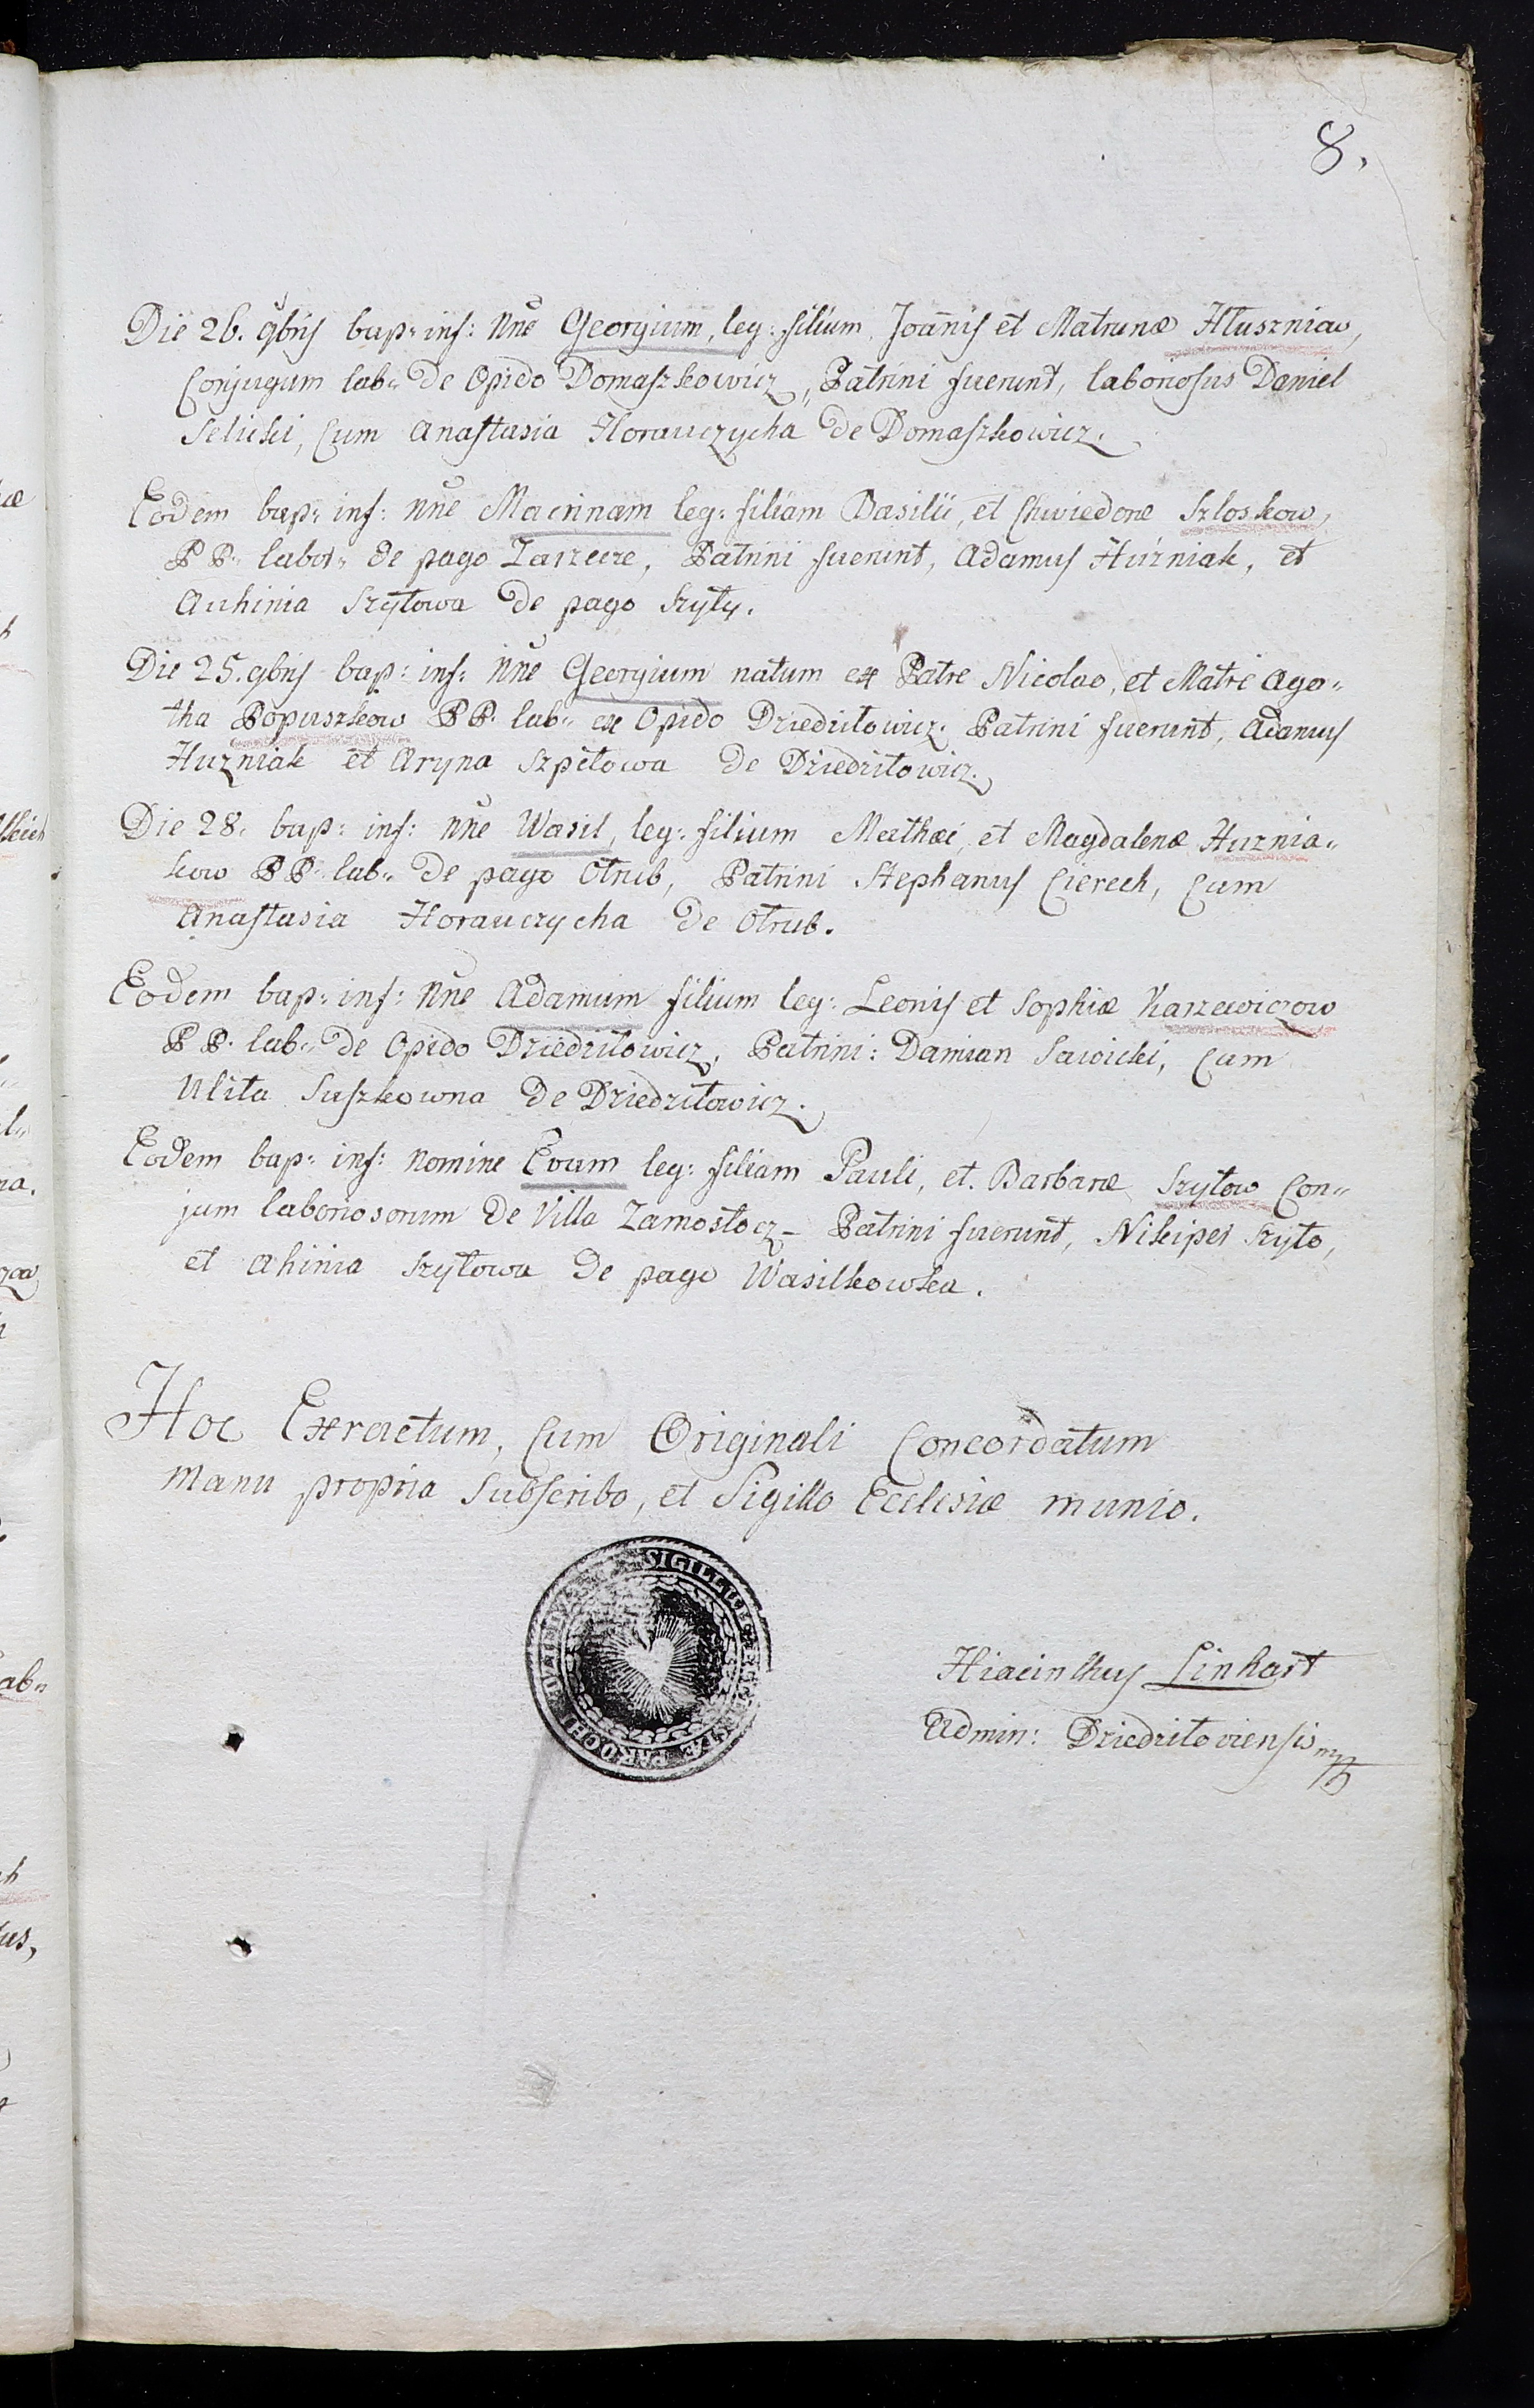 8.
Die 26. 9bris bap: inf: Nñe Georgium, leg: filium Joannis et Matrunæ Hłuszniaw,
Conjugum lab: De Opido Domaszkowicz, Patrini fuerunt, laboriosus Daniel
Selicki, Cum Anastasia Horauczycha de Domaszkowicz.
Eodem bap: inf: Nñe Macrinam leg: filiam Basilii, et Chwiedoræ Szloskow,
PP: labor: de pago Zarzecze, Patrini fuerunt, Adamus Huzniak, et
Auhinia Szyłowa de pago Szyły.
Die 25. 9bris bap: inf: Nñe Georgium natum ex Patre Nicolao, et Matre Aga„
tha Popuszkow PP. lab: ex Opido Dziedziłowicz. Patrini fuerunt, Adamus
Huzniak et Aryna Szpełowa de Dziedziłowicz.
Die 28. bap: inf: Nñe Wasil, leg: filium Mathæi, et Magdalenæ Huznia„
kow PP: lab: De pago Otrub, Patrini Stephanus Cierech, Cum
Anastasia Horauczycha de Otrub.
Eodem bap: inf: Nñe Adamum filium leg: Leonis et Sophiæ Karzewiczow
PP. lab: De Opido Dziedziłowicz. Patrini: Damian Sawicki, Cum
Ulita Suszkowna de Dziedziłowicz.
Eodem bap: inf: Nomine Evam leg: filiam Pauli, et Barbaræ Szyłow Con„
jum laboriosorum De Villa Zamostocz – Patrini fuerunt, Nikiper Szyło,
et Ahinia Szyłowa de pago Wasilkowka.
Hoc Exractum, Cum Originali Concordatum
Manu propria Subscribo, et Sigillo Ecclesiæ munio.
SIGILLUM
PAROCHI
Hiacinthus Linhart
Admin: Dziedziłoviensis mp